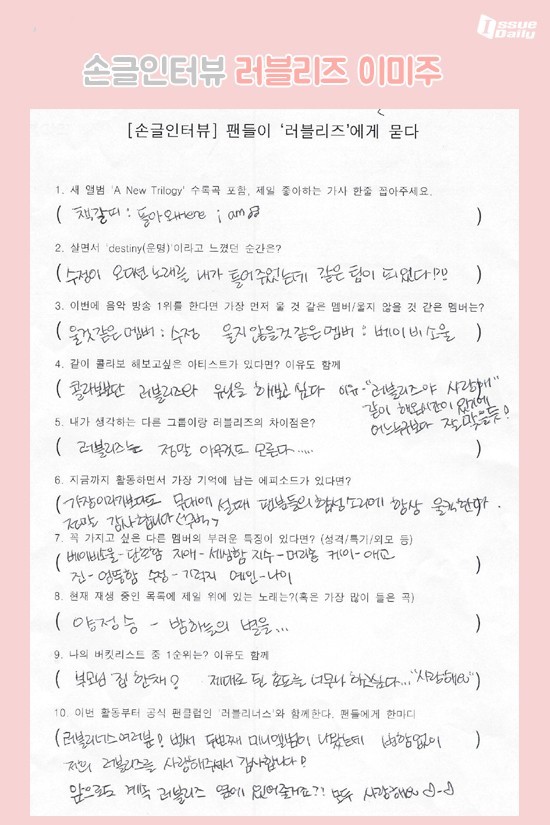 Issue
Daily
손글인터뷰 러블리즈 이미주
[손글인터뷰] 팬들이 '러블리즈'에게 묻다
1. 새 앨범 'A New Trilogy' 수록곡 포함, 제일 좋아하는 가사 한줄 꼽아주세요.
( 책갈피 : 돌아와 Here I am )
2. 살면서 'destiny(운명)'이라고 느꼈던 순간은?
(수정이 오디션 노래를 내가 틀어주었는데 같은 팀이 되었다!! )
3. 이번에 음악 방송 1위를 한다면 가장 먼저 울 것 같은 멤버/울지 않을 것 같은 멤버는?
( 울것같은멤버 : 수정 울지않을것같은멤버 : 베이비소울 )
4. 같이 콜라보 해보고싶은 아티스트가 있다면? 이유도 함께
( 콜라보보단 러블리즈와 유닛을 해보고 싶다 이유-"러블리즈야 사랑해"
같이 해온시간이 있기에
어느누구보다 잘 맞을듯!
5. 내가 생각하는 다른 그룹이랑 러블리즈의 차이점은?
( 러블리즈는 정말 아무것도 모른다..... )
6. 지금까지 활동하면서 가장 기억에 남는 에피소드가 있다면?
(가장이라기보다도 무대에 설때 팬분들의 함성소리에 항상 울컥한다.
정말 감사합니다
7. 꼭 가지고 싶은 다른 멤버의 부러운 특징이 있다면? (성격/특기/외모 등)
(베이비소울-단호함 지애-세심함 지수-머리숱 케이-애교
진-엉뚱함 수정-기럭지 예인-나이 )
8. 현재 재생 중인 목록에 제일 위에 있는 노래는?(혹은 가장 많이 들은 곡)
( 양정승 - 밤하늘의 별을... )
9. 나의 버킷리스트 중 1순위는? 이유도 함께
( 부모님 집 한채? 제대로 된 효도를 너무나 하고싶다..."사랑해요")
10. 이번 활동부터 공식 팬클럽인 '러블리너스'와 함께한다. 팬들에게 한마디
(러블리너스여러분! 벌써 두번째 미니앨범이 나왔는데 변함없이
저희 러블리즈를 사랑해주셔서 감사합니다!
앞으로도 계속 러블리즈 옆에 있어줄거죠?! 모두 사랑해요 )